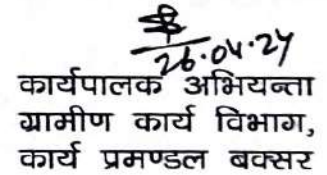 26.04.24
कार्यपालक अभियन्ता
ग्रामीण कार्य विभाग,
कार्य प्रमण्डल बक्सर